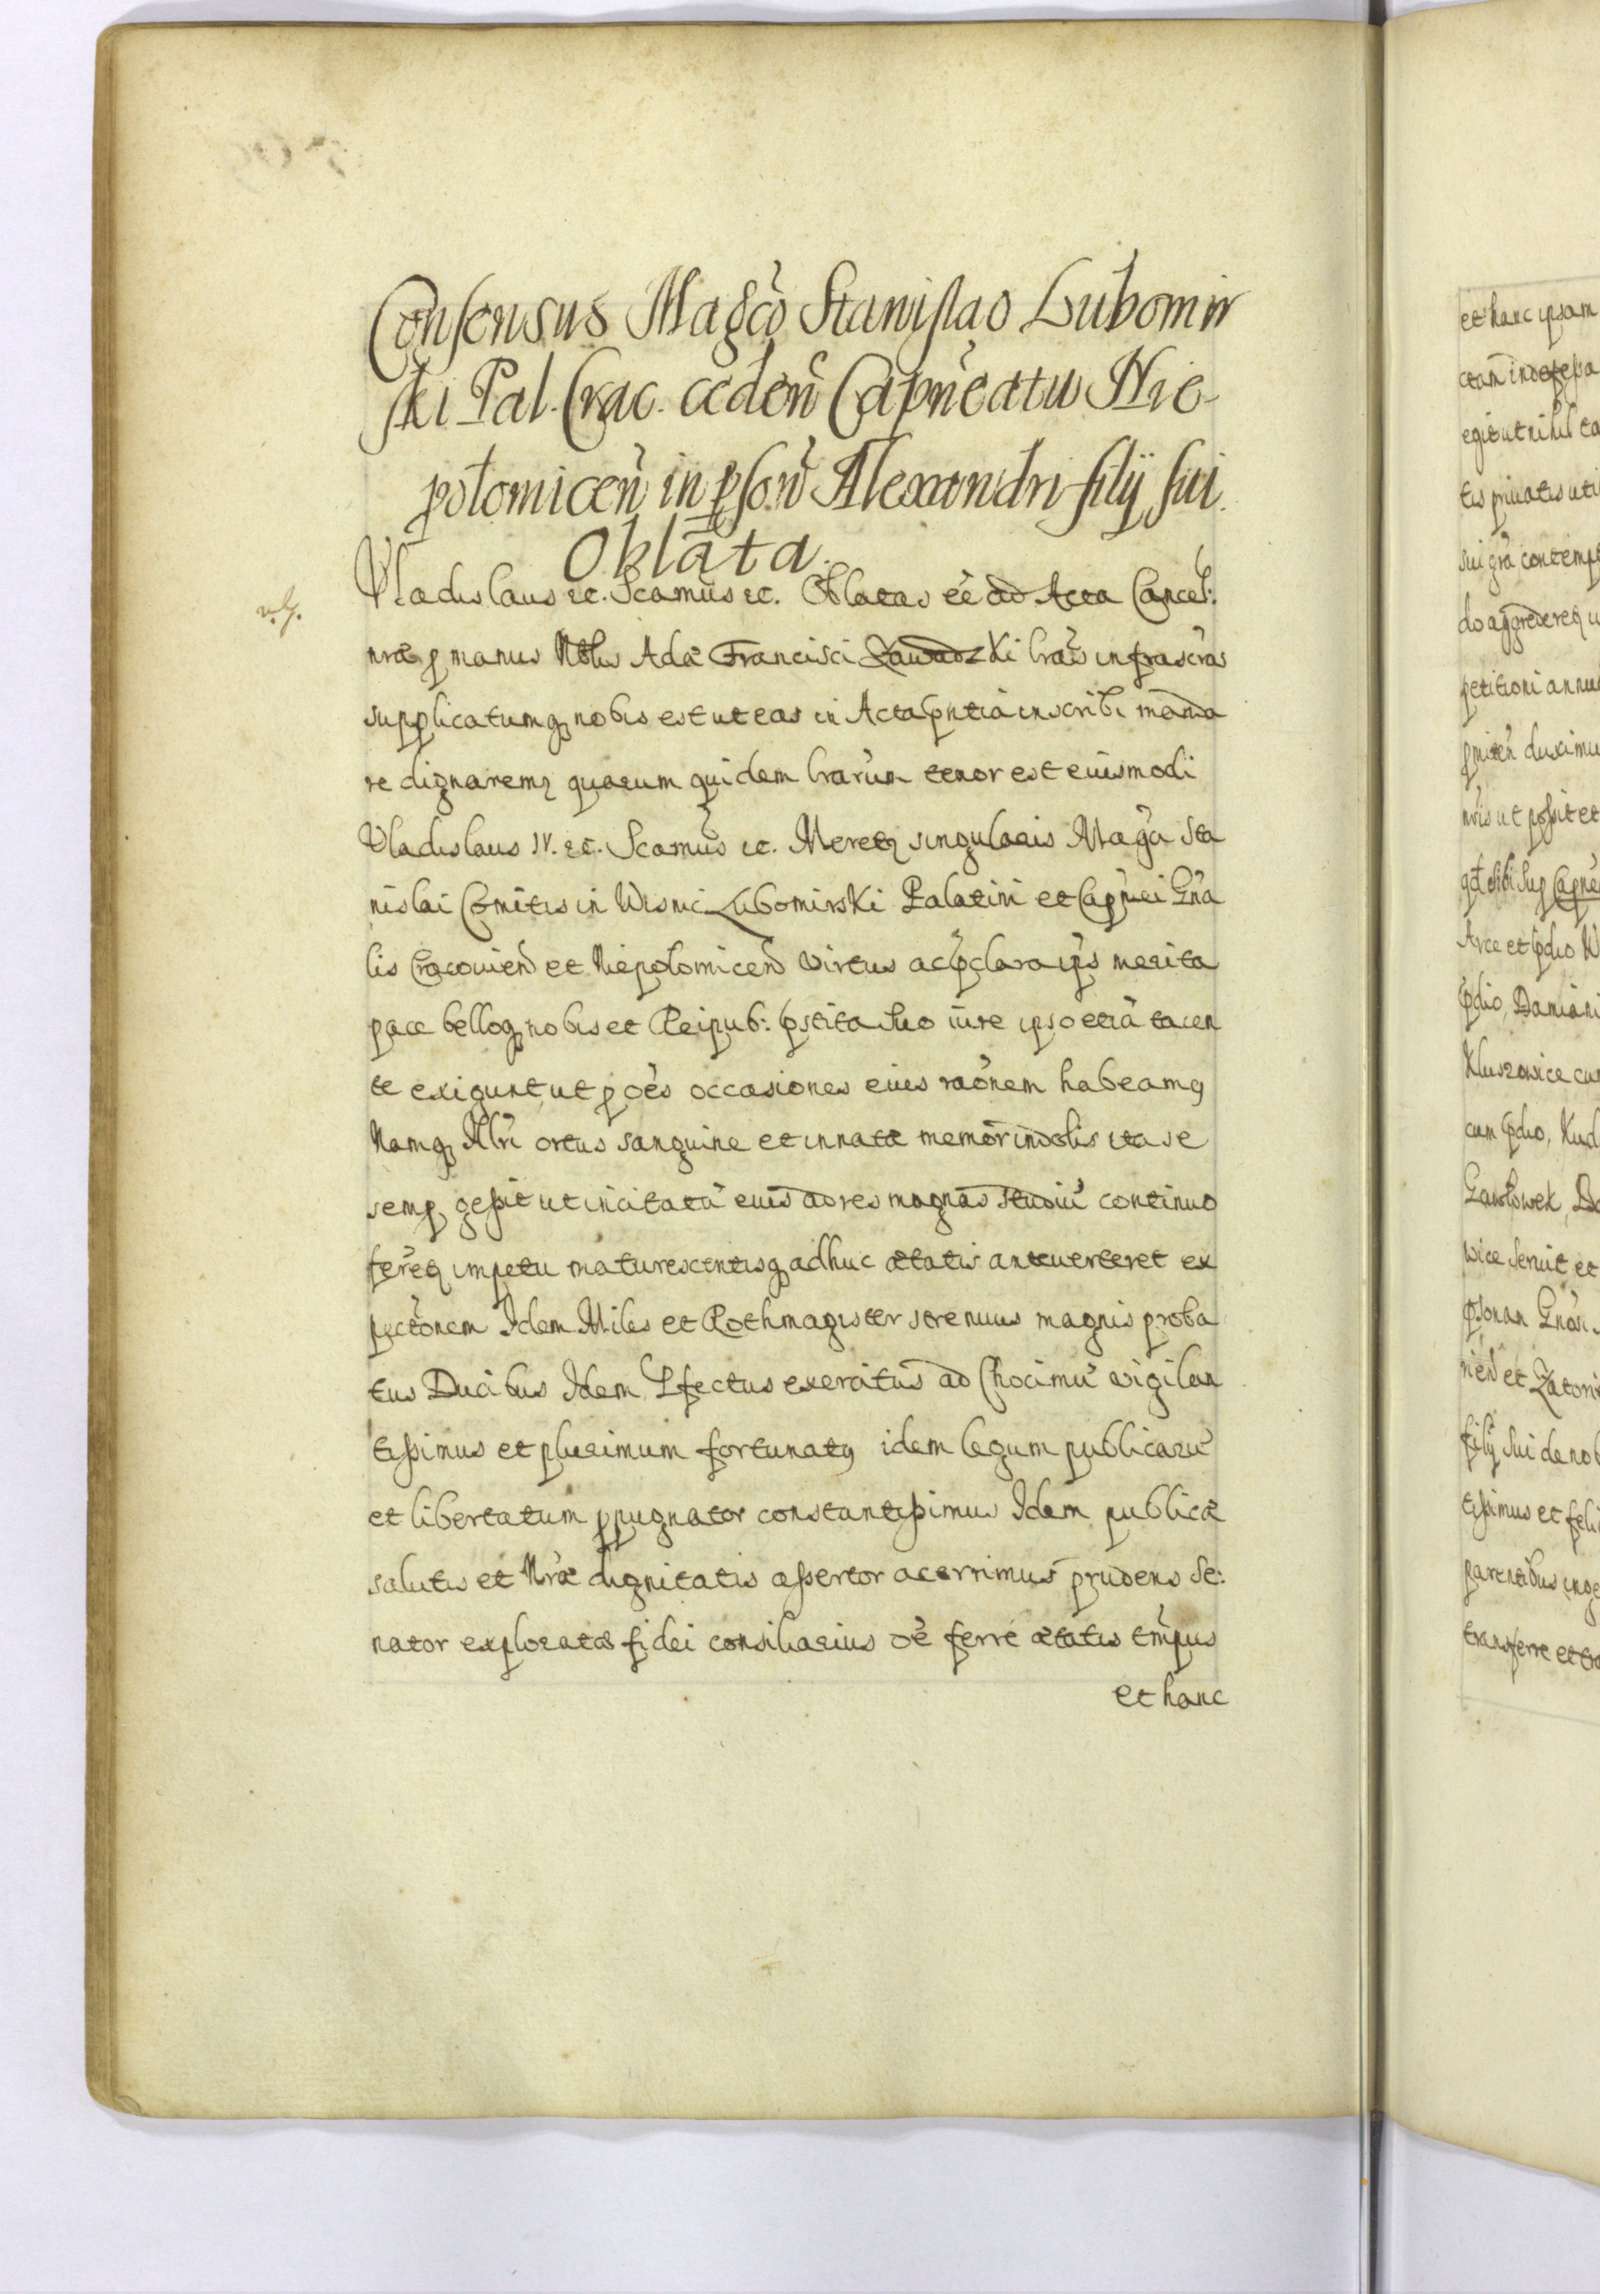 Consensus Magco Stanislao Lubomir
ski Pal. Crac. ceden̄ Capneatu Nie-
polomicen̄ in pson̄ Alexandri filij sui.
Oblata.
Vladislaus etc. Scamus etc. Oblatas eē ad Acta Cancel:
nræ p manus Nblis Adæ Francisci Zawadzki lrās infrascrās
supplicatumq nobis est ut eas in Acta pntia inscribi manda
re dignaremq quarum quidem lrarum tenor est eiusmodi
Vladislaus IV. etc. Scamus etc. Meretq singularis Magci Sta
nislai Comitis in Wisnic Lubomirski Palatini et Capnei Gna
lis Cracovien̄ et Niepolomicen̄ virtus ac pclara ips merita
pace belloq nobis et Reipub: pstita suo iure ipso etiā tacen
te exigunt ut p oēs occasiones eius raōnem habeamq
Namq Illri ortus sanguine et innatæ memor indolis ita se
semp gessit ut incitatā eius ad res magnas studiū continuo
fereq impetu maturescentisq adhuc ætatis anteverteret ex
pectōnem Idem Miles et Rothmagister strenuus magnis proba
tus Ducibus Idem Pfectus exercitus ad Chocimū vigilan
tissimus et plurimum fortunatq idem legum publicarū
et libertatum ppugnator constantissimus Idem publicæ
salutis et Nræ dignitatis assertor acerrimus prudens Se:
nator exploratæ fidei consiliarius oē ferre ætatis tmpus
et hanc
et hanc ipsam
egit ut nihil ta
tis privatis uti
sui gra contemp
do aggredereq u
petitioni annu
duximu
nris ut possit et
Arce et pdio W
pdio, Damieni
cum pdio, Kud
wice servit et
filij sui de nob
tissimus et feli
parentibus inge
transferre et tra